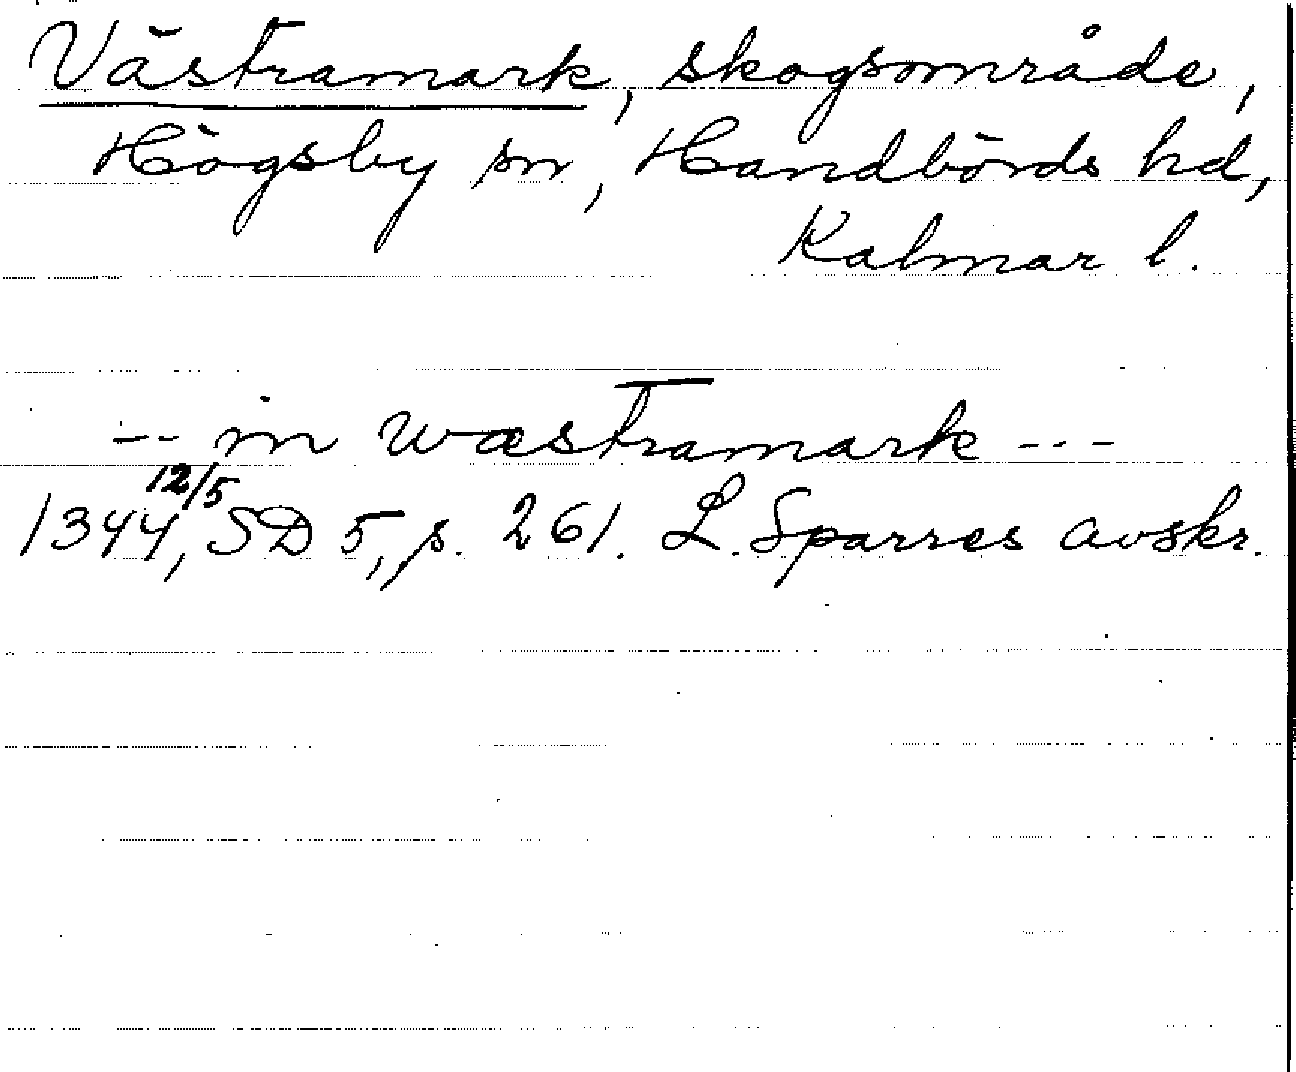 Västramark, skogsområde,
Högsby sn, Handbörds hd,
Kalmar l.
-- in wæstramark ---
1344 12/5, SD 5, s. 261. L. Sparres avskr.